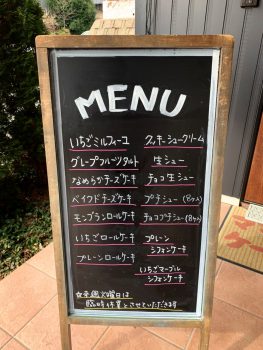 MENU
いちごミルフィーユ
グレープフルーツタルト
なめらかチーズケーキ
ベイクドチーズケーキ
モンブランロールケーキ
いちごロールケーキ
プレーンロールケーキ
クッキーシュークリーム
生シュー
チョコ生シュー
プチシュー(8ケ入)
チョコプチシュー(8ケ入)
プレーン
シフォンケーキ
いちごマーブル
シフォンケーキ
火曜日は
臨時休業とさせていただきます